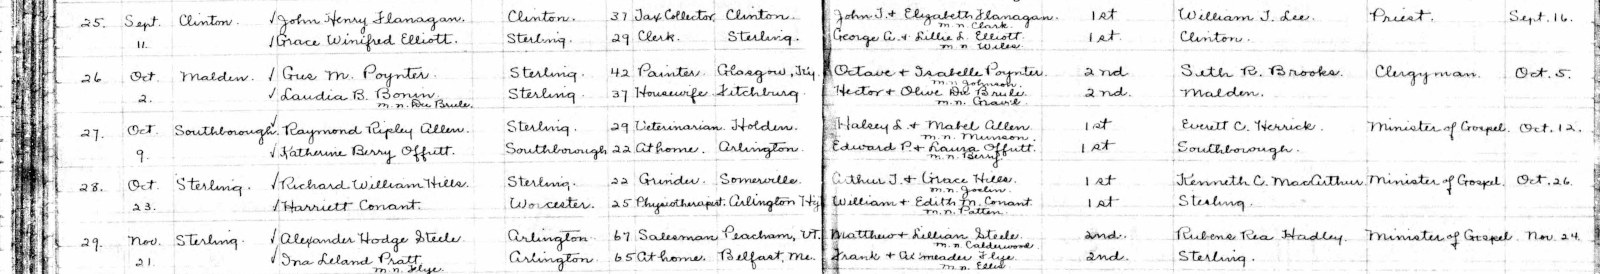 25. Sept. Clinton. √ John Henry Flanagan. Clinton. 37 Tax Collector. Clinton. John T. & Elizabeth Flanagan. 1st William T. Lee. Priest. Sept. 16.
m.n. Clark.
11. √ Grace Winifred Elliott. Sterling. 29 Clerk. Sterling. George A. & Lillie L. Elliott. 1st. Clinton.
m.n. Wiles.
26 Oct Malden. √ Gus M. Poynter. Sterling. 42 Painter. Glasgow, Octave & Isabelle Poynter. 2nd Seth R. Brooks. Clergyman. Oct. 5.
m.n. Johnson.
2. √ Laudia B. Bonin. Sterling. 37 Housewife Fitchburg. Hector & Olive Du Brule. 2nd. Malden.
m.n. Du Brule.
27. Oct Southborough. √ Raymond Ripley Allen. Sterling. 29 Veterinarian. Holden. Halsey L. & Mabel Allen. 1st Everett C. Herrick. Minister of Gospel. Oct. 12.
m.n. Munson.
9. √ Katherine Berry Offutt. Southborough 22 At home. Arlington. Edward P. & Laura Offutt. 1st Southborough.
m.n. Berry
28. Oct Sterling. √ Richard William Hills. Sterling. 22 Grinder. Somerville. Arthur T. & Grace Hills. 1st Kenneth C. MacArthur. Minister of Gospel. Oct. 26
m.n. Joslin.
23. √ Harriett Conant. Worcester. 25 Physiotherapist. Arlington William & Edith M. Conant. 1st Sterling.
m.n. Patten.
29. Nov. Sterling. √ Alexander Hodge Steele. Arlington. 67 Salesman Peacham, VT. Matthew & Lillian Steele. 2nd. Rubens Rea Hadley. Minister of Gospel. Nov. 24.
m.n. Calderwood.
21. √ Ina Leland Pratt. Arlington. 65 At home. Belfast, Me. Frank & Flye. 2nd. Sterling.
m.n. Flye. m.n. Ellis